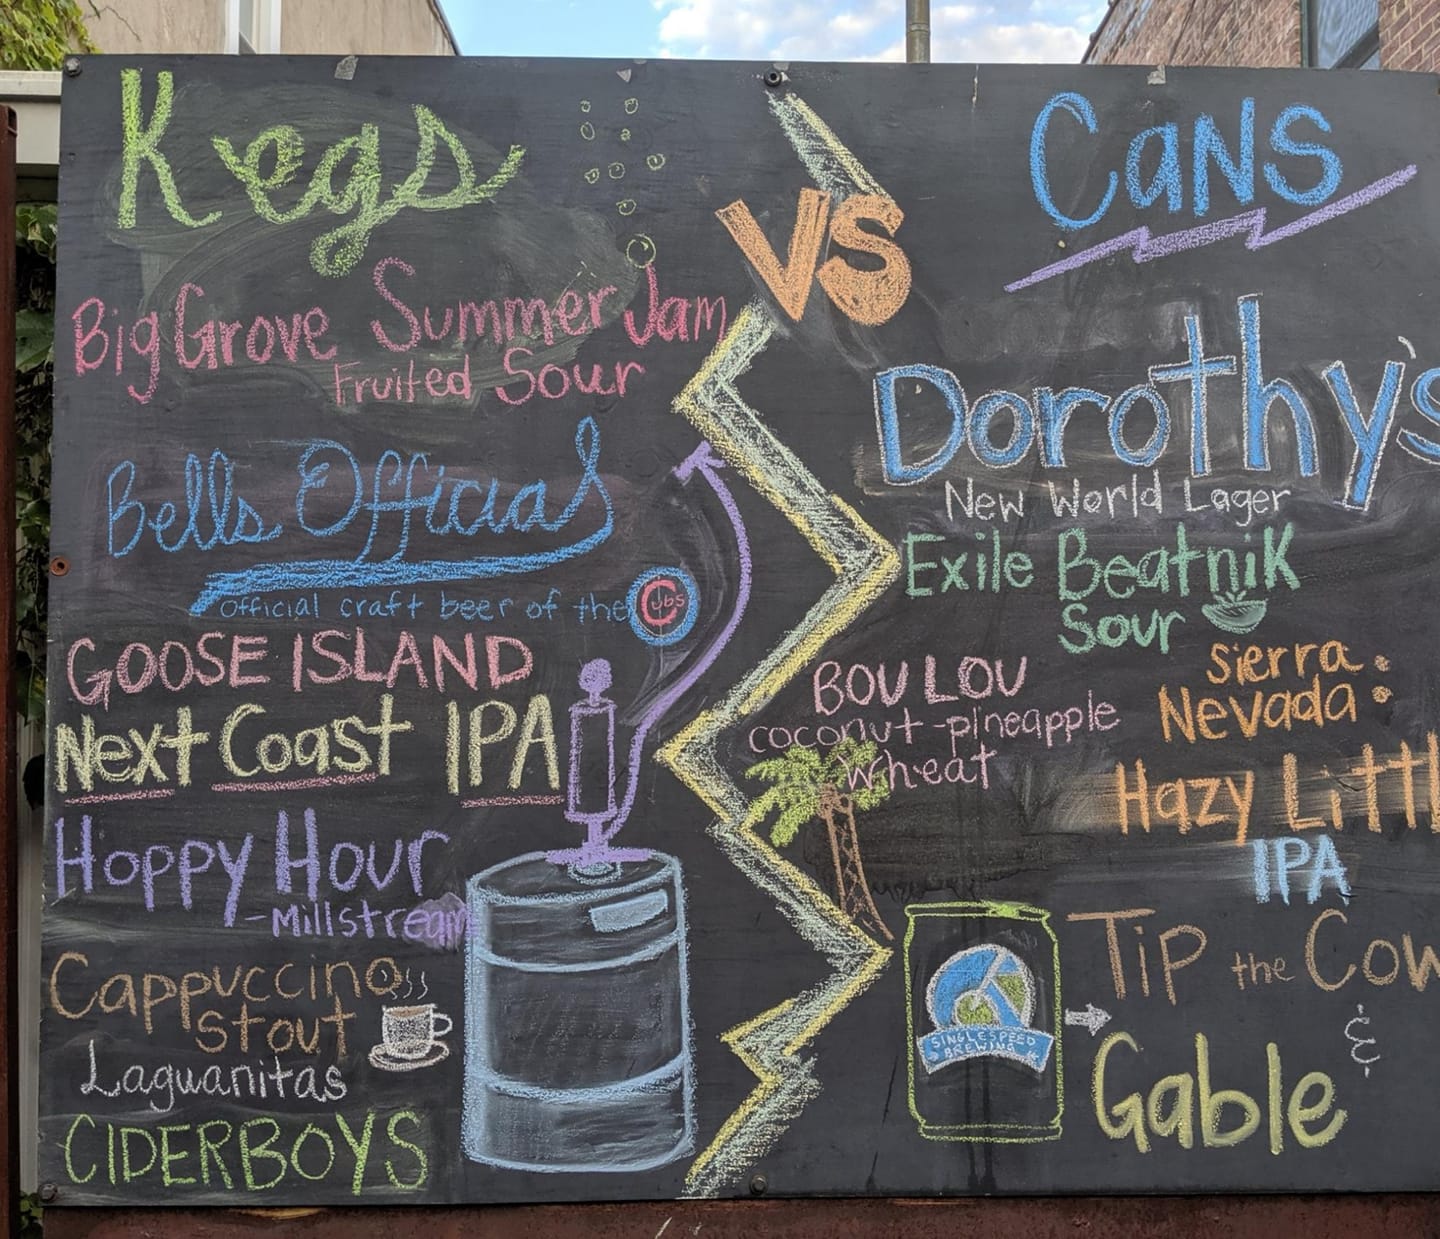 Kegs
Big Grove Summer Jam
Fruited Sour
Bells Official
Official craft beer of the Cubs
GOOSE ISLAND
Next Coast IPA
Hoppy Hour
-Millstream
Cappuccino
Stout
Laguanitas
CIDERBOYS
VS
Cans
Dorothy's
New World Lager
Exile Beatnik
Sour
BOU LOU
coconut-pineapple
wheat
Sierra
Nevada:
Hazy Littl
IPA
Tip the Cow
&
Gable
SINGLESPEED
BREWING